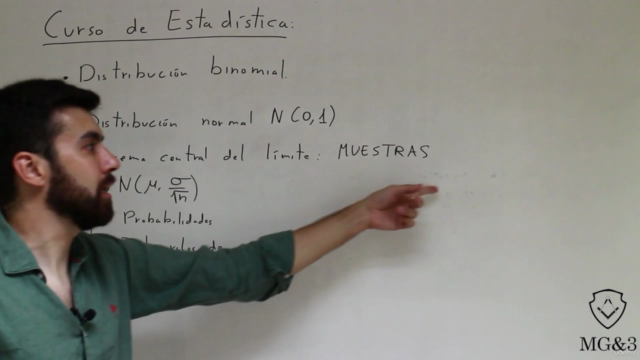 Curso de Estadística:
• Distribución binomial.
Distribución normal N(0,1)
central del límite: MUESTRAS
N(μ, σ/√n)
Probabilidades
MG&3